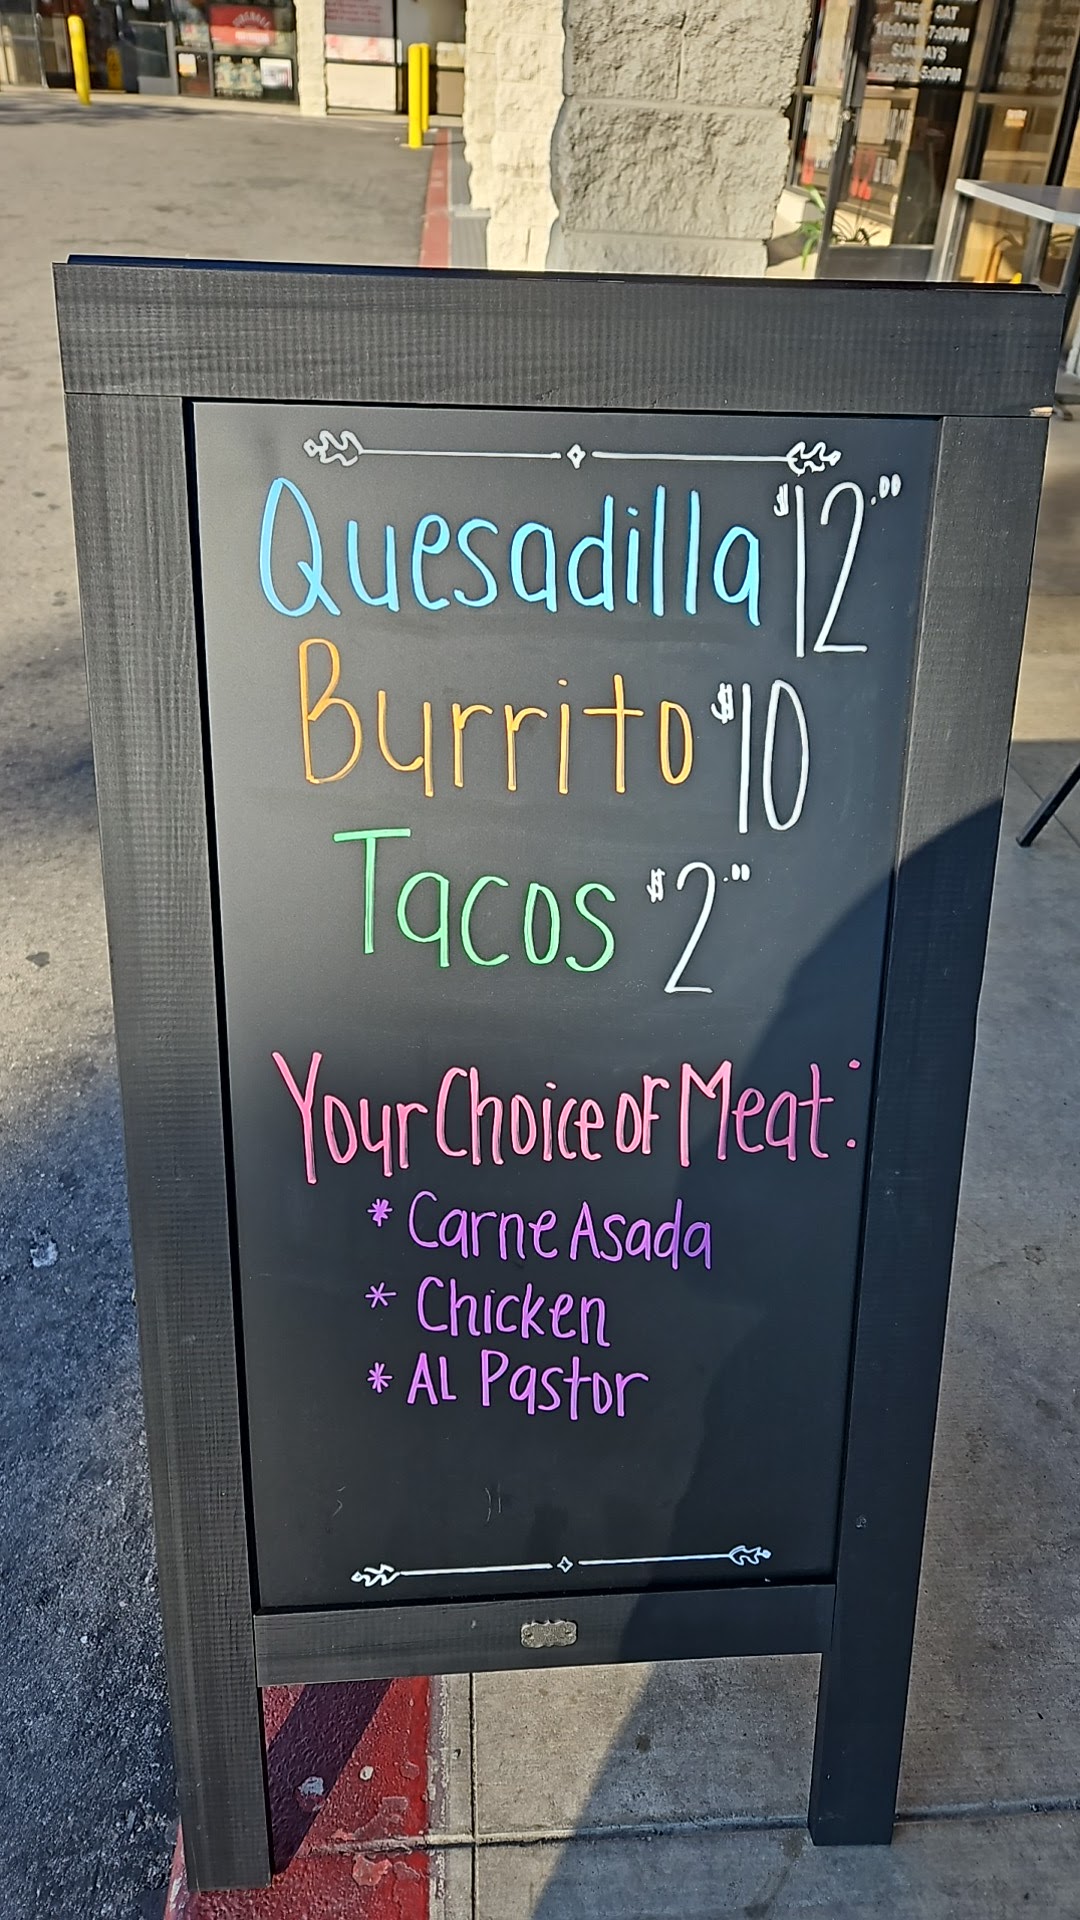 TUES-SAT
10:00AM-7:00PM
SUNDAYS
Quesadilla $12.00
Burrito $10
Tacos $2.00
Your Choice of Meat:
* Carne Asada
* Chicken
* AL Pastor